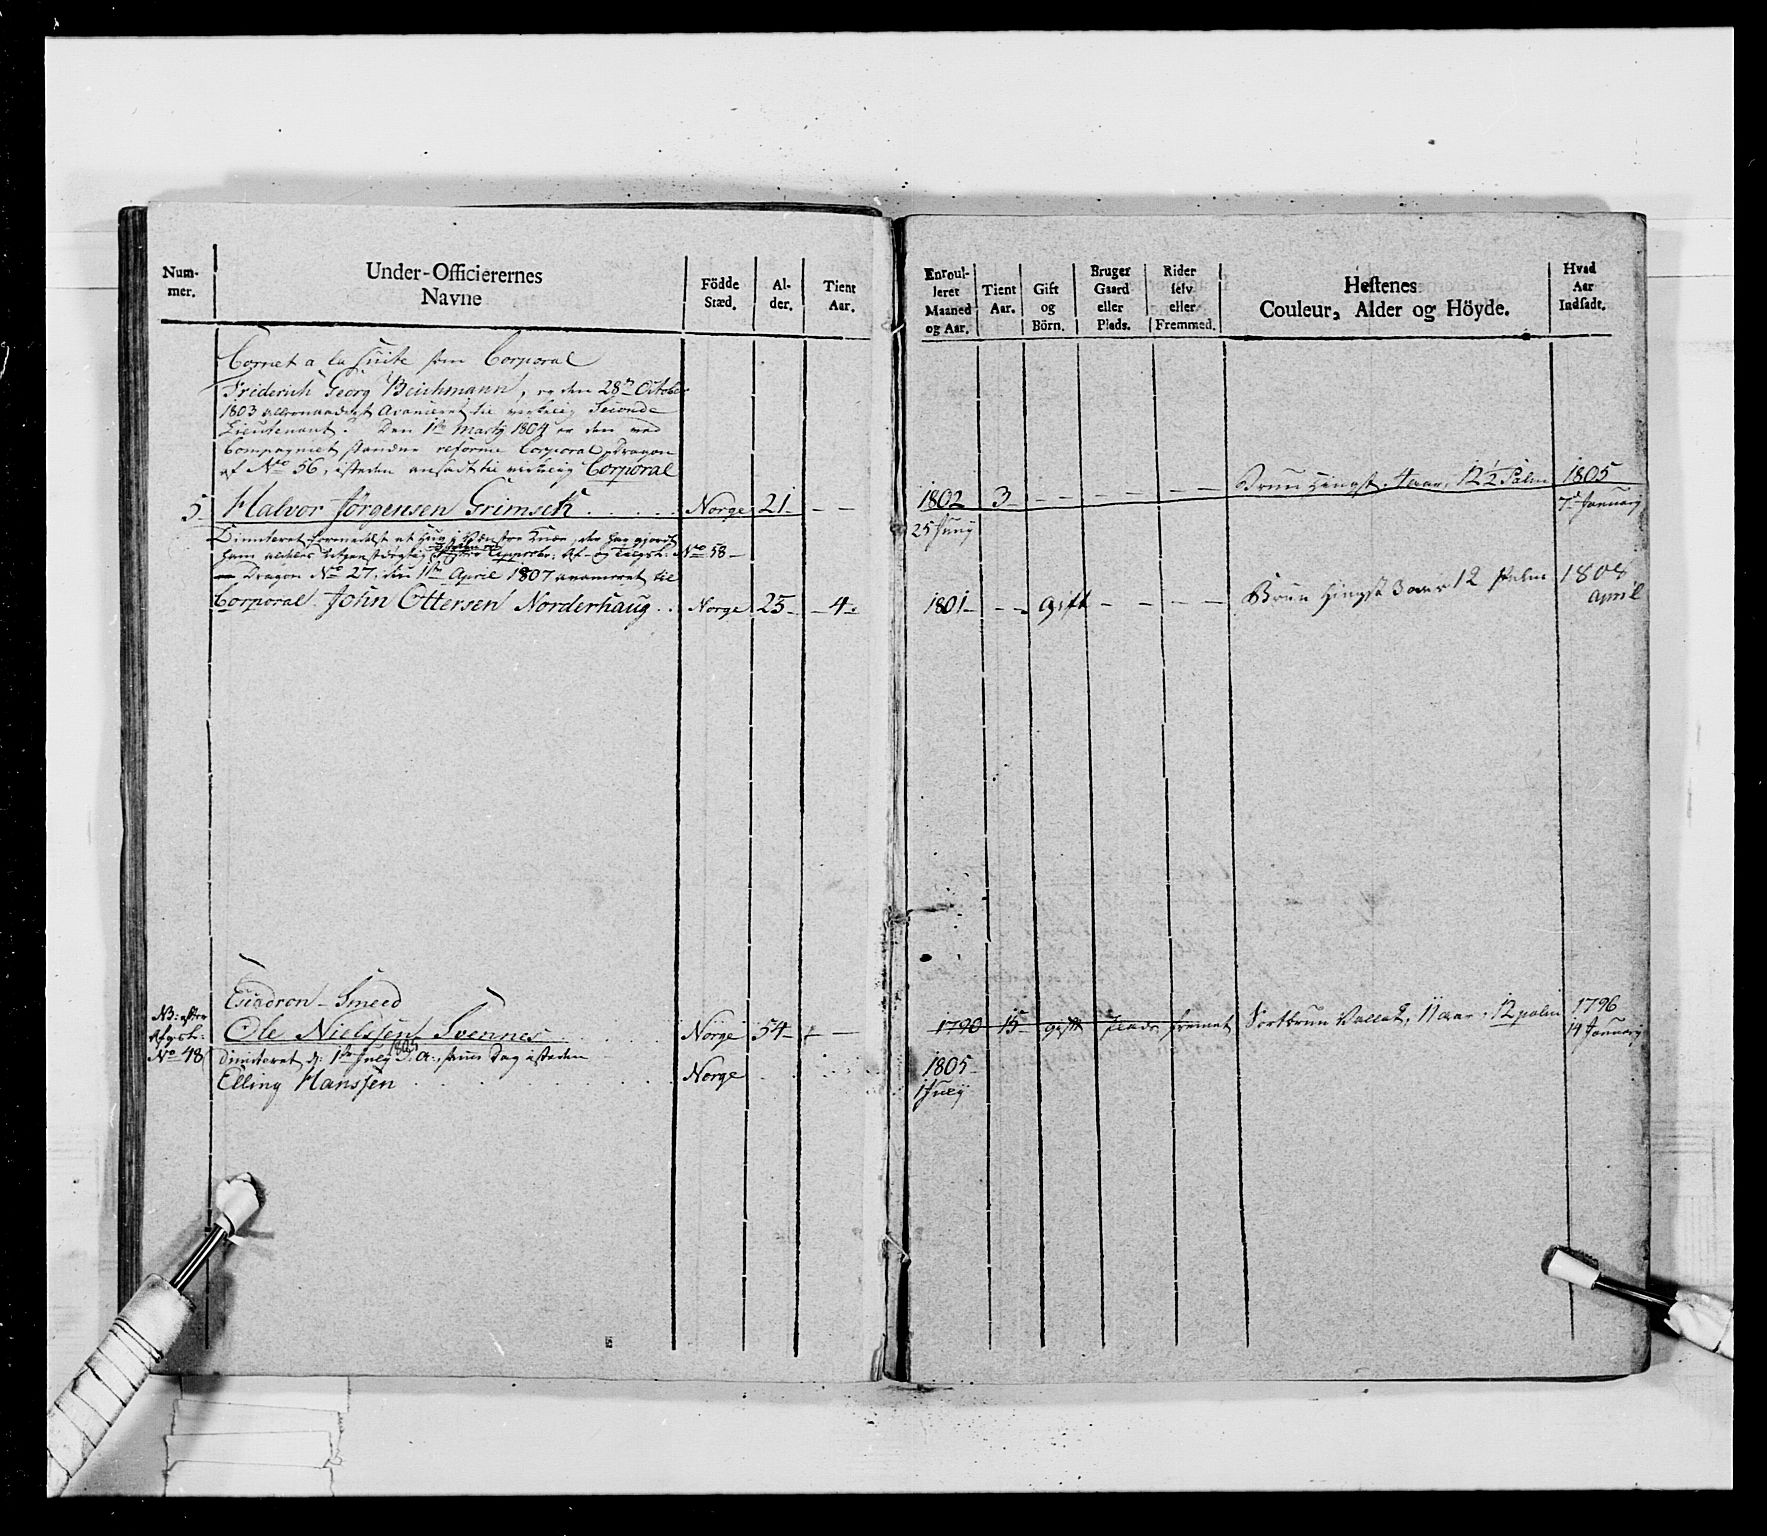 Num-
mer.
Under-Officierernes
Navne
Födde
Stæd.
Al-
der.
Tient
Aar.
Enroul-
leret
Maaned
og Aar.
Tient
Aar.
Gift
og
Börn.
Bruger
Gaard
eller
Plads.
Rider
selv
eller
Fremmed.
Hestenes
Couleur, Alder og Höyde.
Hvad
Aar
Indsadt.
Cornet a la Suite som Corporal
Friderich Georg Beichmann, er den 28de October
1803 allernaadigst Avanceret til virkelig Seconde
Lieutenant. Den 1ste Marty 1804 er den ved
Compagniet staaende reforme Corporal, Dragon
af No 56, isteden ansadt til virkelig Corporal
5. Halvor Jörgensen Grimseth . . . . . Norge 21 - - - 1802 3 - - - - - Brun Hingst, 4 aar, 12 1/2 Palm 1805
25 Juny
7de January
Dimiteret formedelst et Hug i Venstre Knæe, der har gjordt
ham aldeles utjenstdygtig Afsk: No 58
Dragon No 27, den 1ste April 1807 avanceret til
Corporal John Ottersen Norderhaug . . Norge 25 - 4 - 1801 - - - Gift - - - - Brun Hingst 3 aar 12 Palm 1808
April
Escadron-Smeed
NB: efter
Afgsk:
No 48
Ole Nielssen Svennes Norge 54 - 1790 15 gift Plads fremet Sortbrun Vallak, 11 aar, 12 palm 1796
14 January
Dimiteret d: 1ste July 1805 D: A:, samme Dag isteden
Elling Hanssen . . . . . . . . Norge . . . . 1805
1 July